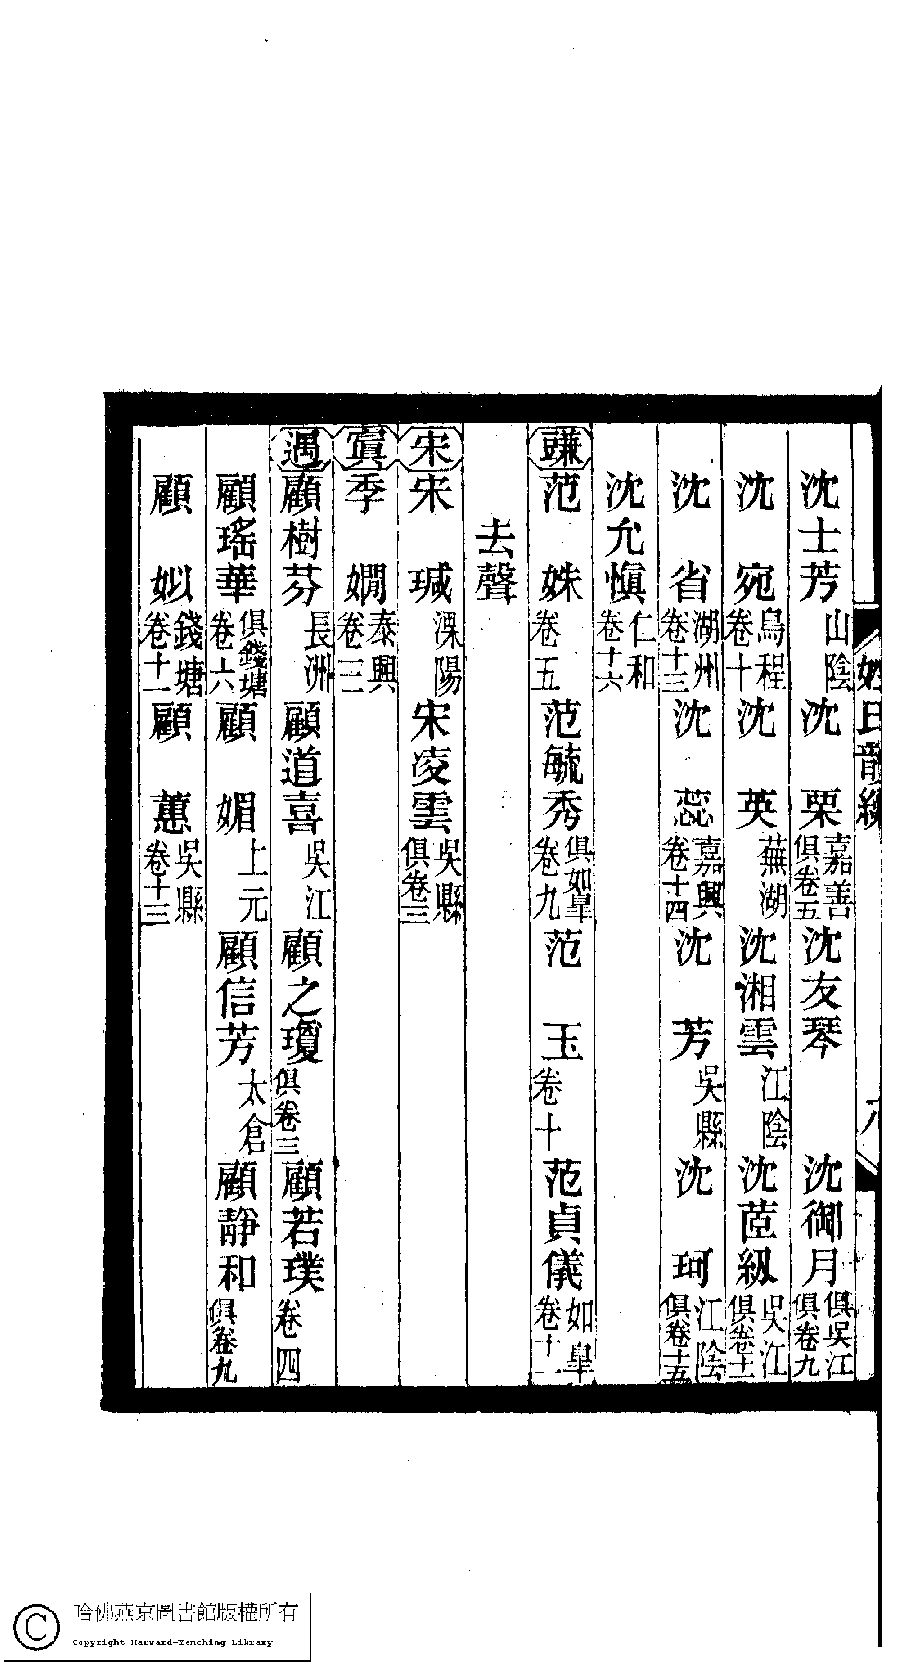 沈士芳山陰沈　栗嘉善俱卷五沈友琴　沈御月俱吳江俱卷九
沈　宛烏程卷十沈　英蕪湖沈湘雲江陰沈茝級吳江
沈　省湖州卷十三沈　蕊嘉興卷十四沈　芳吳縣沈　珂江陰俱卷十五
沈允慎仁和卷十六
豏范　姝卷五范毓秀俱如皐卷九范　玉卷十范貞儀如皐
去聲
宋宋　瑊溧陽宋凌雲吳縣俱卷三
寘季　嫻泰興
遇顧樹芬長洲顧道喜吳江顧之瓊俱卷三顧若璞卷四
顧瑤華俱錢塘卷六顧　媚上元顧信芳太倉顧靜和俱卷九
顧　姒錢塘卷十一顧　蕙吳縣卷十三
姓氏韻編
哈佛燕京圖書館版權所有
Copyright Harvard-Yenching Library